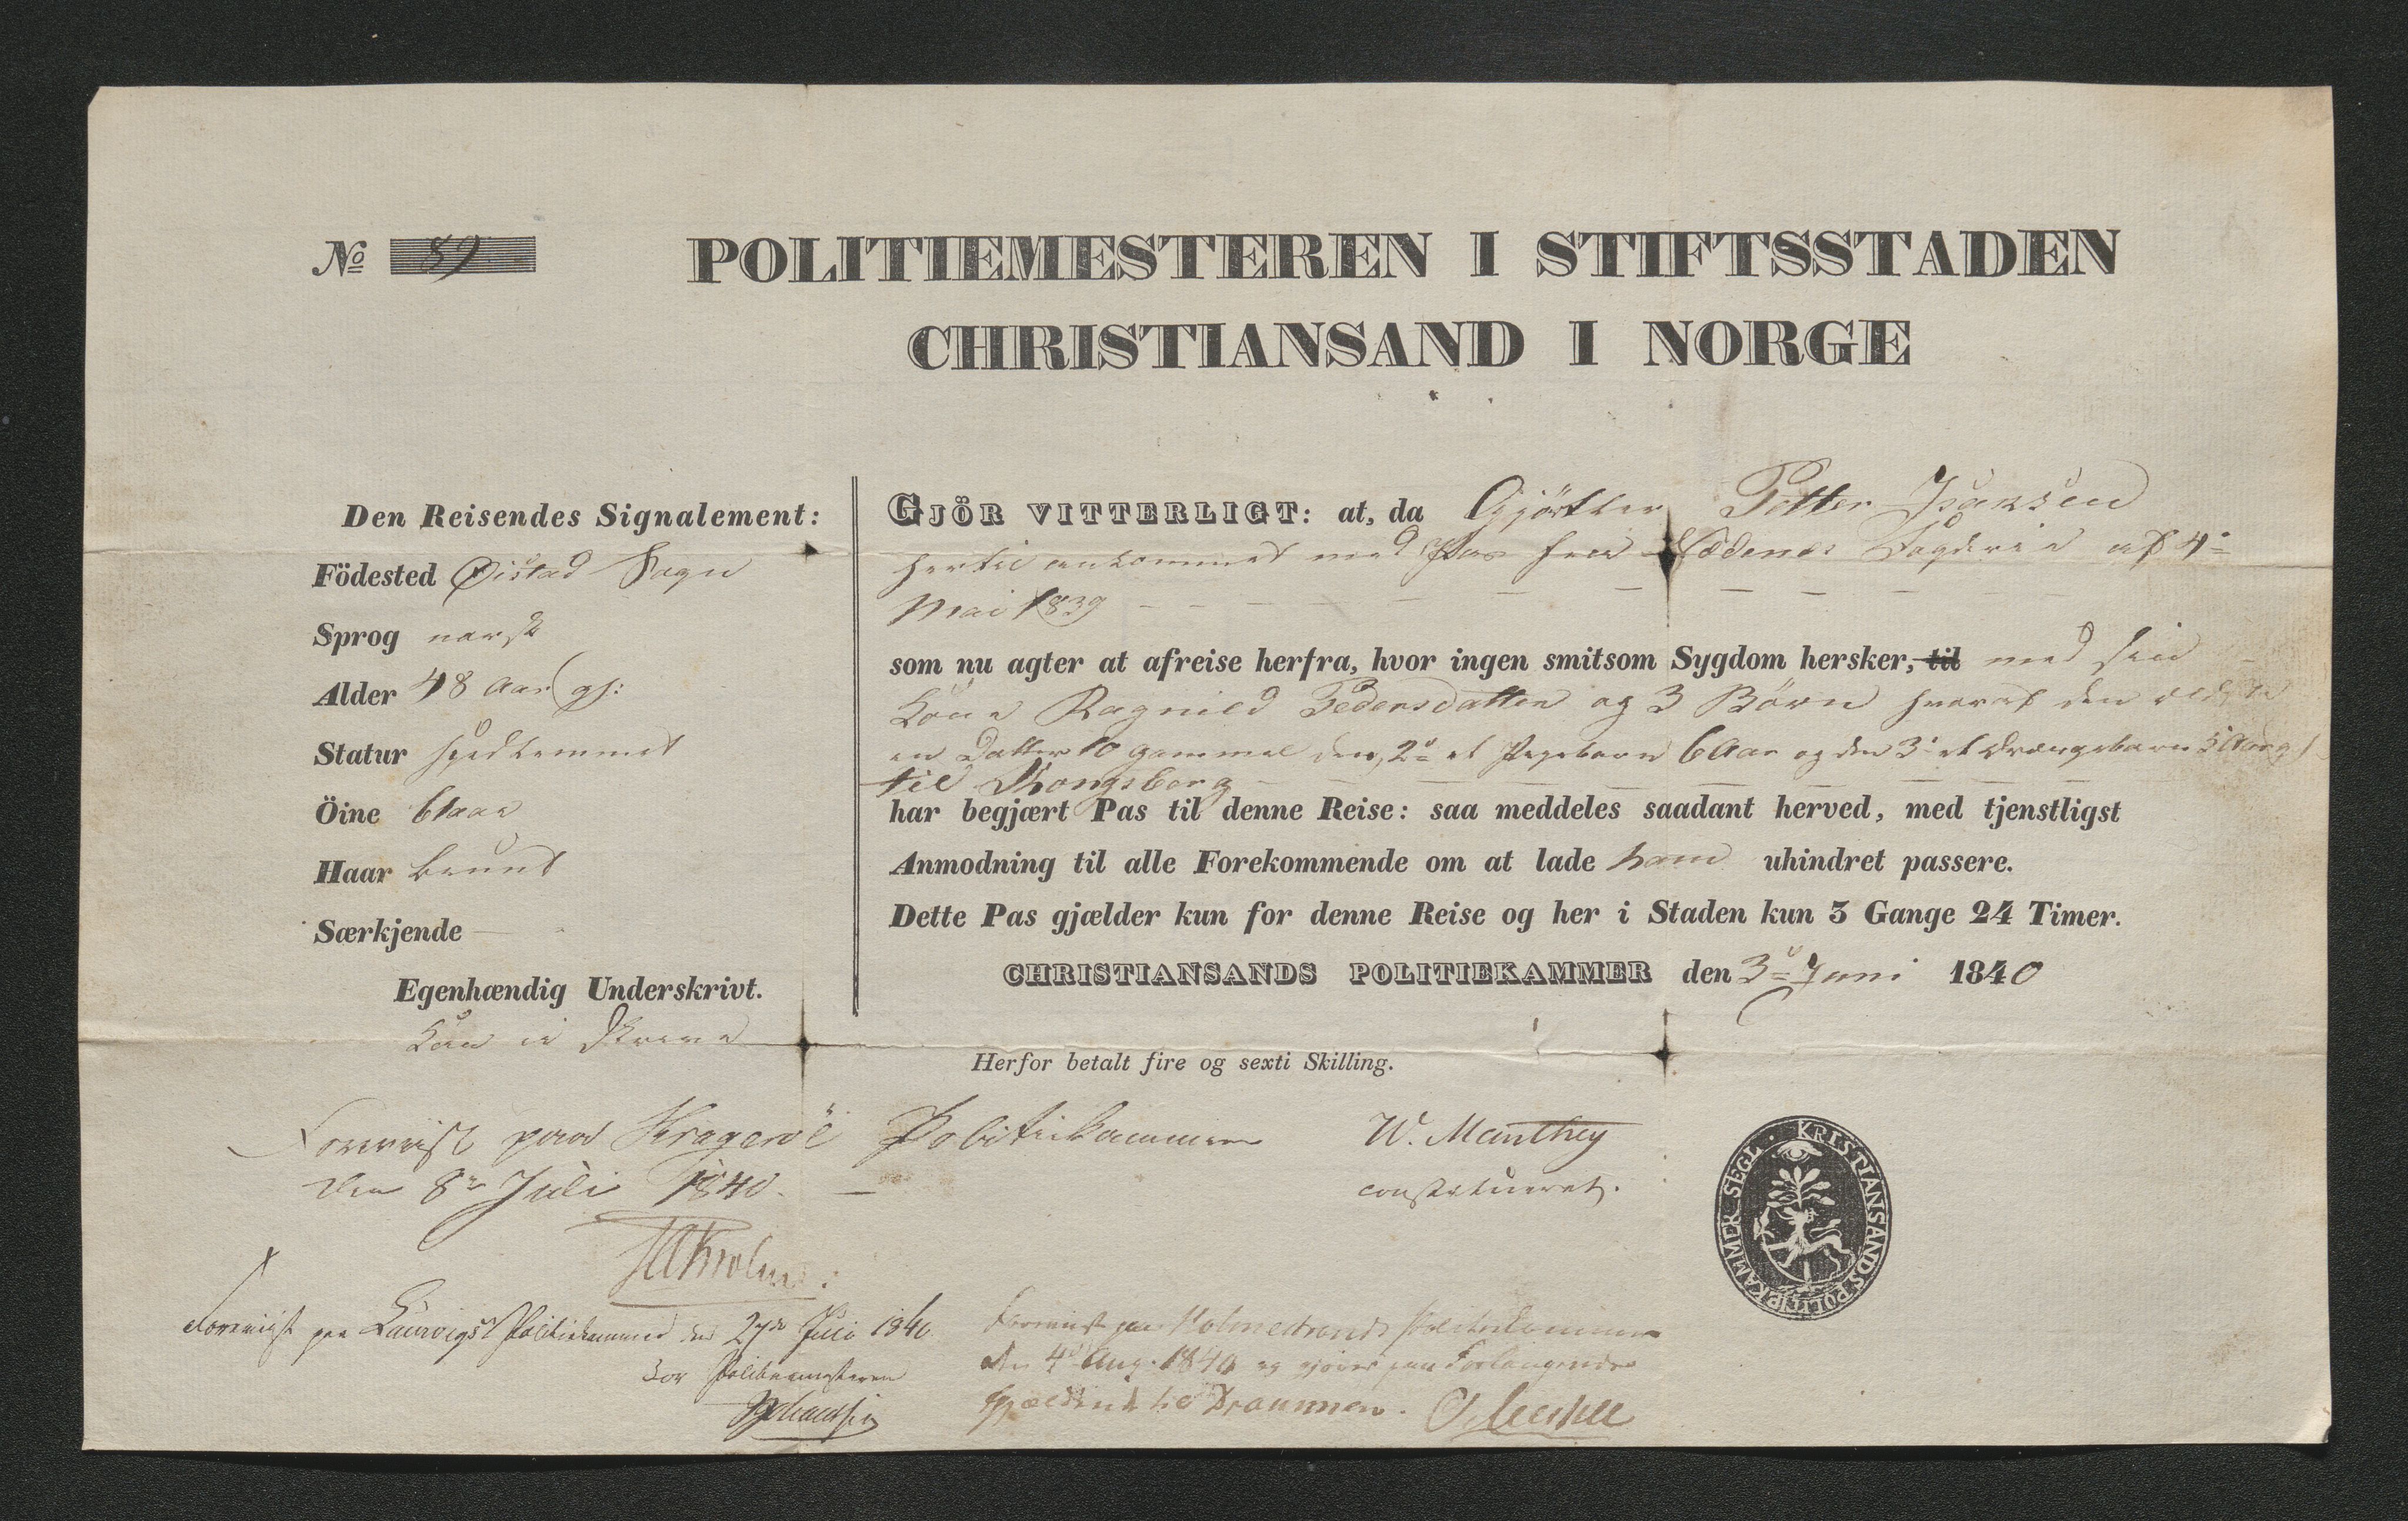 No 89
POLITIEMESTEREN I STIFTSSTADEN
CHRISTIANSAND I NORGE
Den Reisendes Signalement:
Födested Øistad Sogn
Sprog norsk
Alder 48 Aar gl:
Statur spedlemmet
Öine blaae
Haar bruunt
Særkjende —
Egenhændig Underskrivt.
Kan ei skrive
GJÖR VITTERLIGT: at, da Gjörtler Petter Isaksen
hertil ankommet med Pas fra Nedenes Fogderie af 4de
Mai 1839
som nu agter at afreise herfra, hvor ingen smitsom Sygdom hersker, til med sin
Kone Ragnild Pedersdatter og 3 Börn hvoraf den ældste
en Datter 10 gammel den 2d et Pigebarn 6 Aar og den 3d et Drængebarn
til Kongsberg
har begjært Pas til denne Reise: saa meddeles saadant herved, med tjenstligst
Anmodning til alle Forekommende om at lade ham uhindret passere.
Dette Pas gjælder kun for denne Reise og her i Staden kun 3 Gange 24 Timer.
CHRISTIANSANDS POLITIEKAMMER den 3d Juni 1840
Herfor betalt fire og sexti Skilling.
W. Manthey
constitueret.
KRISTIANSANDS POLITIEKAMMER SEGL
Foreviist paa Krageröe Politiekammer
den 8de Juli 1840.
Foreviist paa Laurvigs Politiekammer den 27de Juli 1840
For Politiemesteren
Foreviist paa Holmestrands Politiekammer
den 4de Aug. 1840 og gjöres paa Forlangende
gjældende til Drammen.